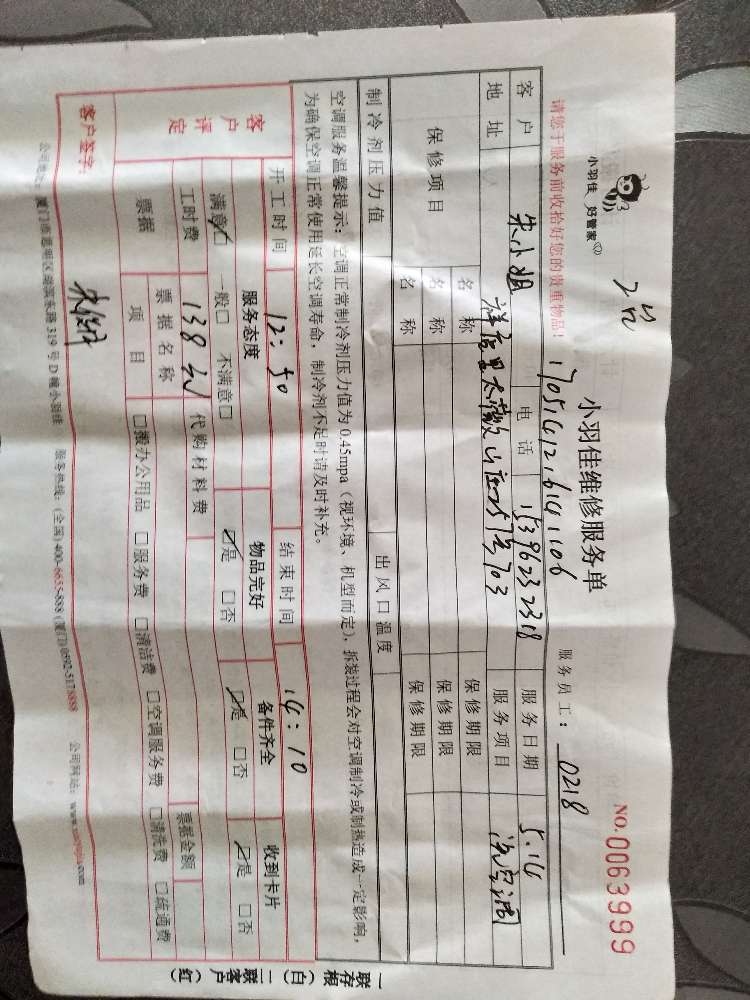 小羽佳 好管家
小羽佳维修服务单
NO.0063999
170516121614 1106
服务员工: 0218
请您于服务前收拾好您的贵重物品!
客户 朱小姐 电话 15396232318 服务日期 5.14
地址 703 服务项目 洗空调
保修项目 名称 保修期限
名称 保修期限
名称 保修期限
制冷剂压力值 出风口温度
空调服务温馨提示:空调正常制冷剂压力值为0.45mpa(视环境、机型而定),拆装过程会对空调制冷或制热造成一定影响,
为确保空调正常使用延长空调寿命,制冷剂不足时请及时补充。
开工时间 12:50 结束时间 14:10
客户评定 服务态度 物品完好 备件齐全 收到卡片
满意☑ 一般□ 不满意□ ☑是 □否 ☑是 □否 ☑是 □否
工时费 138 代购材料费
票据 票据名称 票据金额
项目 □搬办公用品 □服务费 □清洁费 □空调服务费 □清洗费 □疏通费
客户签字:
公司地址:厦门市思明区 319号D幢小羽佳 服务热线:(全国)400-6655-888 (厦门)0592-5178888 公司网站:
一联存根(白) 二联客户(红)